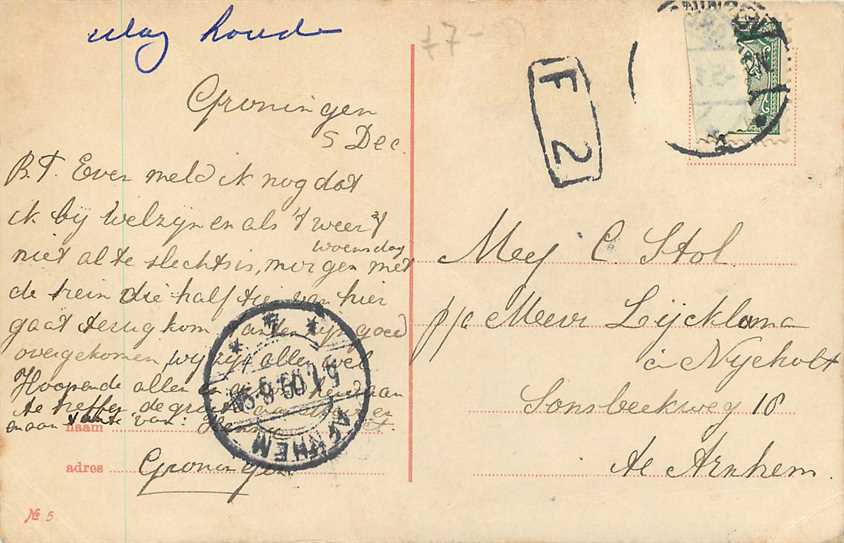 Groningen
5 Dec.
B.T. Even meld ik nog dat
ik bij welzijn en als 't weer
niet al te slecht is, morgen woensdag met
de trein die half tien van hier
gaat terug kom. goed
overgekomen allen wel.
Hoopende allen
te treffen de groeten
en aan tante van:
naam
adres Groningen
№ 5
77-
F 2
ARNHEM
Mej C Stol.
p/a Mevr Lijcklama
à Nijeholt
Sonsbeekweg 18
te Arnhem.